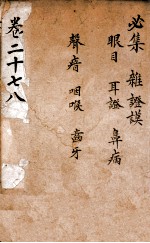 必集 雜證謨
眼目 耳證 鼻病
聲瘖 咽喉 齒牙
卷二十七八